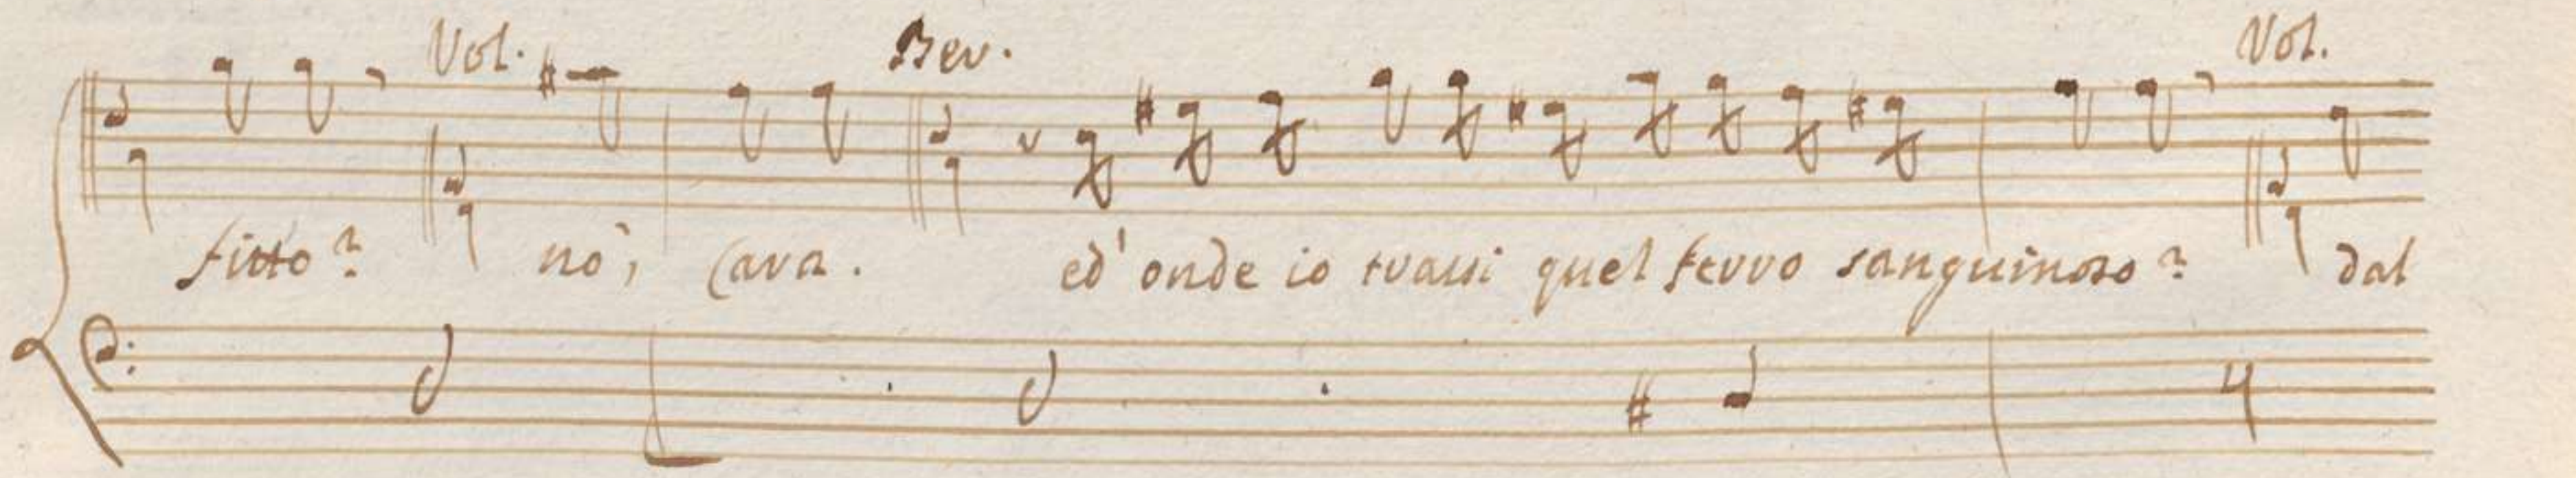 Vol. Ber. Vol.
fitto? nò, Cara. ed' onde io trassi quel ferro sanguinoso? dal